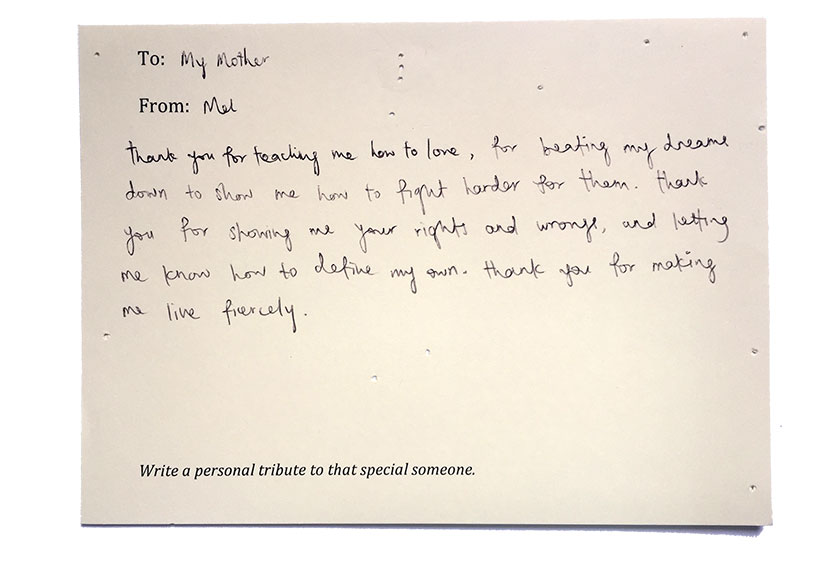 To: My Mother
From: Mel
thank you for teaching me how to love, for beating my dreams
down to show me how to fight harder for them. thank
you for showing me your rights and wrongs, and letting
me know how to define my own. thank you for making
me live fiercely.
Write a personal tribute to that special someone.